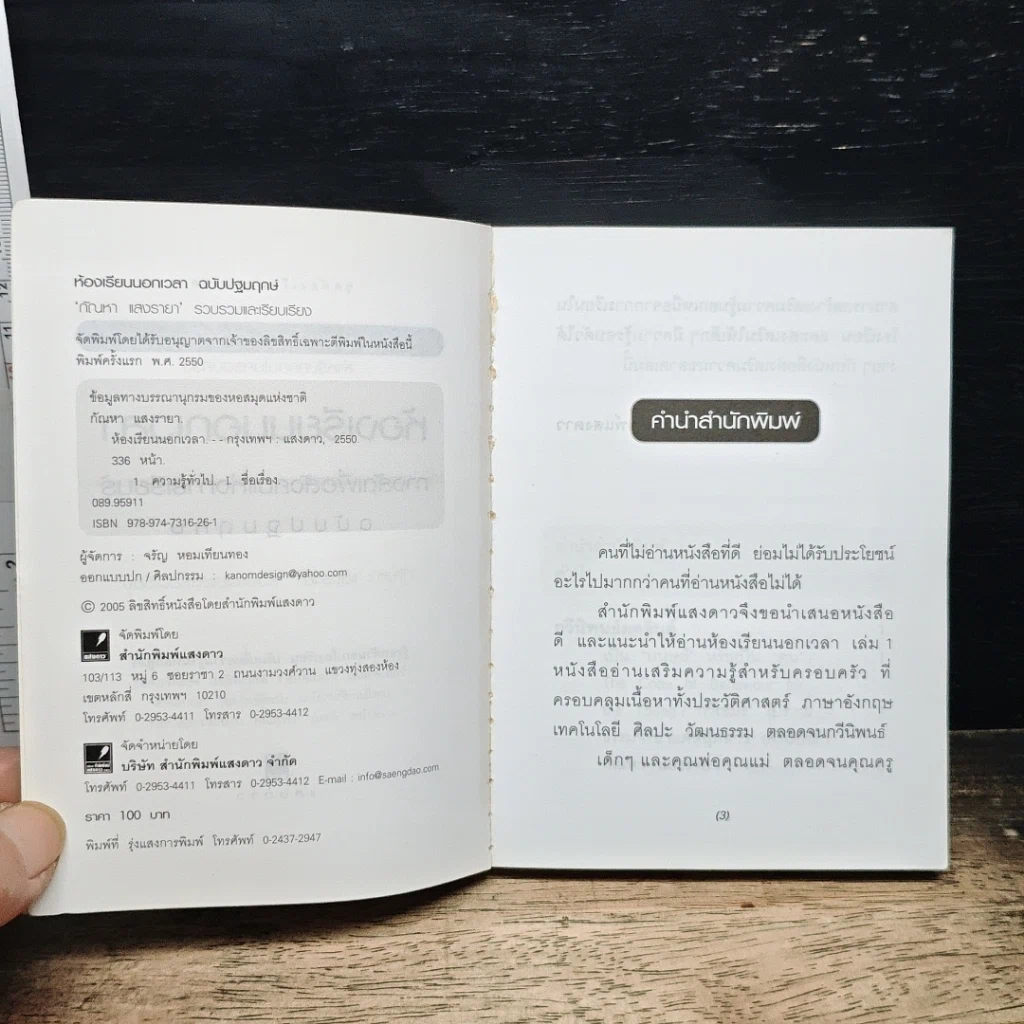 ห้องเรียนนอกเวลา ฉบับปฐมฤกษ์
'กัณหา แสงรายา' รวบรวมและเรียบเรียง
จัดพิมพ์โดยได้รับอนุญาตจากเจ้าของลิขสิทธิ์เฉพาะตีพิมพ์ในหนังสือนี้
พิมพ์ครั้งแรก พ.ศ. 2550
ข้อมูลทางบรรณานุกรมของหอสมุดแห่งชาติ
กัณหา แสงรายา.
ห้องเรียนนอกเวลา. - - กรุงเทพฯ : แสงดาว, 2550.
336 หน้า.
1. ความรู้ทั่วไป. I. ชื่อเรื่อง.
089.95911
ISBN 978-974-7316-26-1
ผู้จัดการ : จรัญ หอมเทียนทอง
ออกแบบปก / ศิลปกรรม : kanomdesign@yahoo.com
© 2005 ลิขสิทธิ์หนังสือโดยสำนักพิมพ์แสงดาว
แสงดาว
จัดพิมพ์โดย
สำนักพิมพ์แสงดาว
103/113 หมู่ 6 ซอยราชา 2 ถนนงามวงศ์วาน แขวงทุ่งสองห้อง
เขตหลักสี่ กรุงเทพฯ 10210
โทรศัพท์ 0-2953-4411 โทรสาร 0-2953-4412
จัดจำหน่ายโดย
บริษัท สำนักพิมพ์แสงดาว จำกัด
โทรศัพท์ 0-2953-4411 โทรสาร 0-2953-4412 E-mail : info@saengdao.com
ราคา 100 บาท
พิมพ์ที่ รุ่งแสงการพิมพ์ โทรศัพท์ 0-2437-2947
คำนำสำนักพิมพ์
คนที่ไม่อ่านหนังสือที่ดี ย่อมไม่ได้รับประโยชน์
อะไรไปมากกว่าคนที่อ่านหนังสือไม่ได้
สำนักพิมพ์แสงดาวจึงขอนำเสนอหนังสือ
ดี และแนะนำให้อ่านห้องเรียนนอกเวลา เล่ม 1
หนังสืออ่านเสริมความรู้สำหรับครอบครัว ที่
ครอบคลุมเนื้อหาทั้งประวัติศาสตร์ ภาษาอังกฤษ
เทคโนโลยี ศิลปะ วัฒนธรรม ตลอดจนกวีนิพนธ์
เด็กๆ และคุณพ่อคุณแม่ ตลอดจนคุณครู
(3)